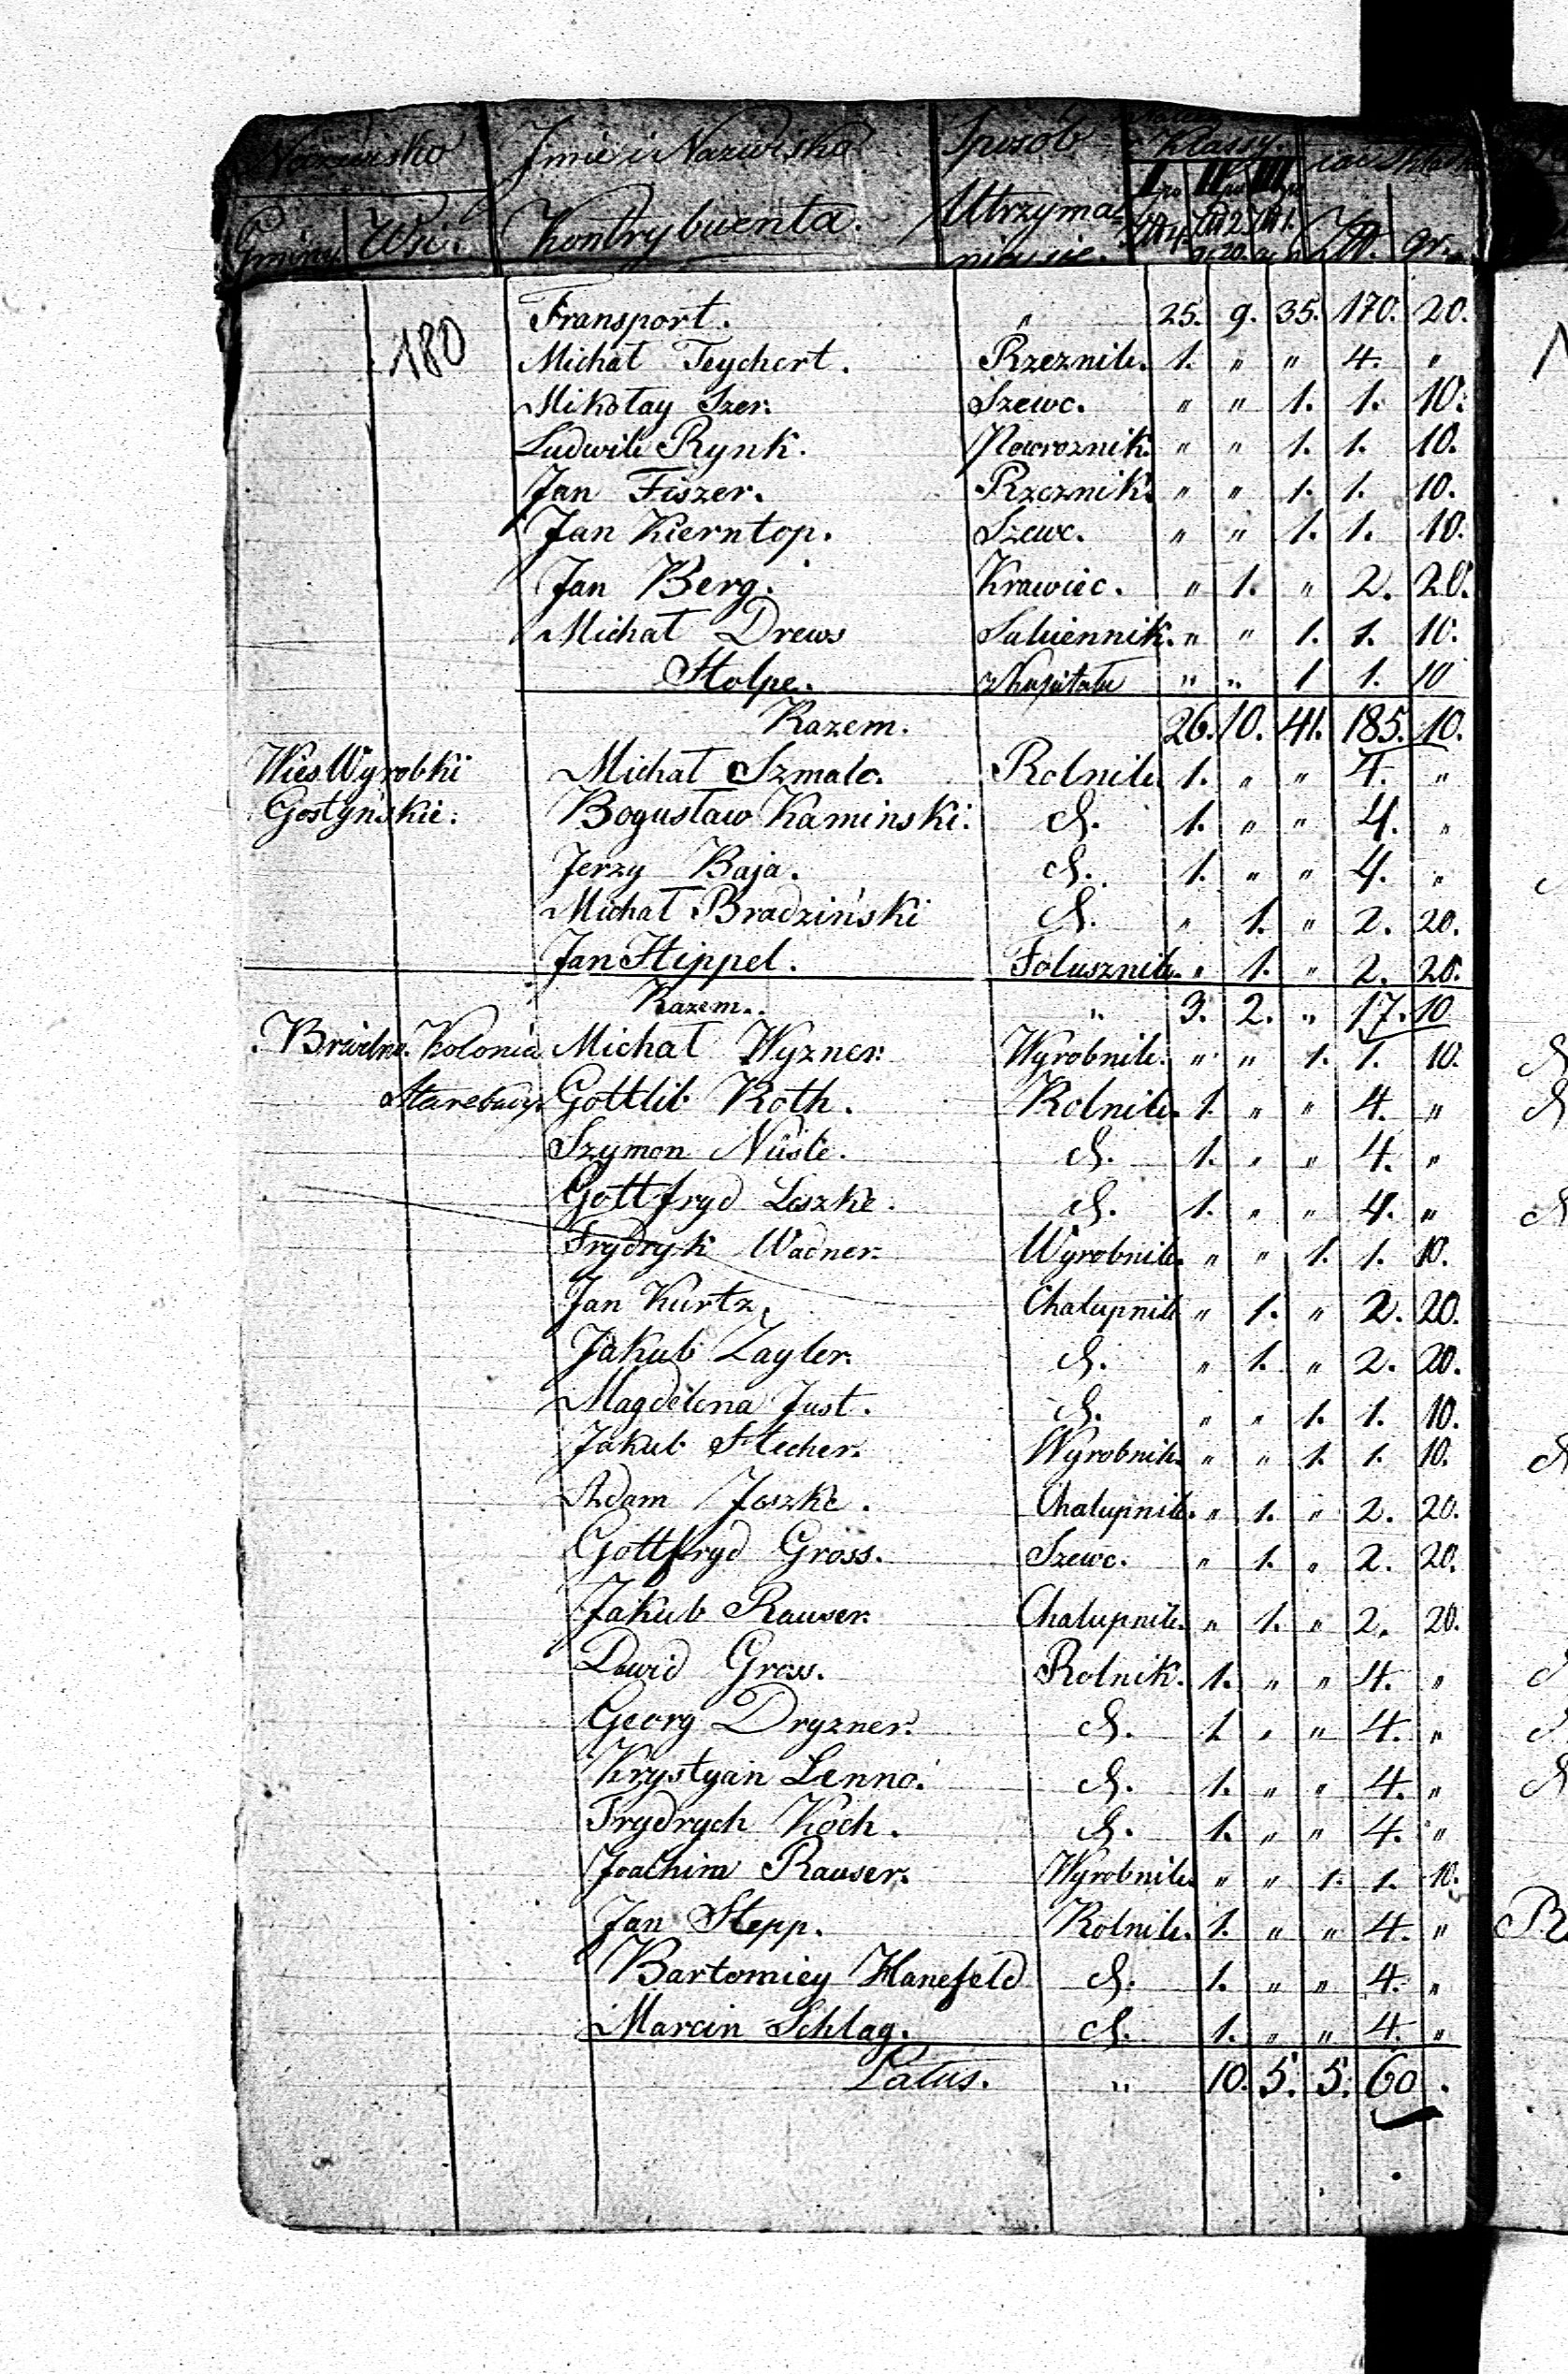 Nazwisko Jmie i Nazwisko Sposób Klassy.
Gminy Wsi. Kontrybuenta. Utrzyma- Zł. gr.
nia sie.
180 Transport. " 25. 9. 35. 170. 20.
Michał Teychert. Rzeznik. 1. " " 4. "
Mikołay Szer. Szewc. " " 1. 1. 10.
Ludwik Rynk. Powroznik. " " 1. 1. 10.
Jan Fiszer. Rzeznik. " " 1. 1. 10.
Jan Kierntop. Szewc. " " 1. 1. 10.
Jan Berg. Krawiec. " 1. " 2. 20.
Michał Drews Sukiennik. " " 1. 1. 10.
Stolpe. z kapitału " " 1 1. 10
Razem. 26. 10. 41. 185. 10.
Wies Wyrobki Michał Szmalc. Rolnik. 1. " " 4. "
Gostyńskie. Bogusław Kaminski. d. 1. " " 4. "
Jerzy Baja. d. 1. " " 4. "
Michał Bradziński d. " 1. " 2. 20.
Jan Hippel. Folusznik. " 1. " 2. 20.
Razem. " 3. 2. " 17. 10
Brwilno. Kolonia Michał Wyzner. Wyrobnik. " " 1. 1. 10.
Gottlib Roth. Rolnik. 1. " " 4. "
Szymon Nüsle. d. 1. " " 4. "
Gottfryd Leszke. d. 1. " " 4. "
Frydryk Wadner. Wyrobnik. " " 1. 1. 10.
Jan Kurtz. Chałupnik " 1. " 2. 20.
Jakub Zayler. d. " 1. " 2. 20.
Magdelena Just. d. " " 1. 1. 10.
Jakub Stecher. Wyrobnik. " " 1. 1. 10.
Adam Jeszke. Chałupnik. " 1. " 2. 20.
Gottfryd Gross. Szewc. " 1. " 2. 20.
Jakub Rauser. Chałupnik. " 1. " 2. 20.
Dawid Gross. Rolnik. 1. " " 4. "
Georg Dryzner. d. 1. " " 4. "
Krystyan Lenno. d. 1. " " 4. "
Frydrych Koch. d. 1. " " 4. "
Joachim Rauser. Wyrobnik. " " 1. 1. 10.
Jan Stepp. Rolnik. 1. " " 4. "
Bartomiey Hanefeld d. 1. " " 4. "
Marcin Schlag. d. 1. " " 4. "
Latus. " 10. 5. 5. 60 .